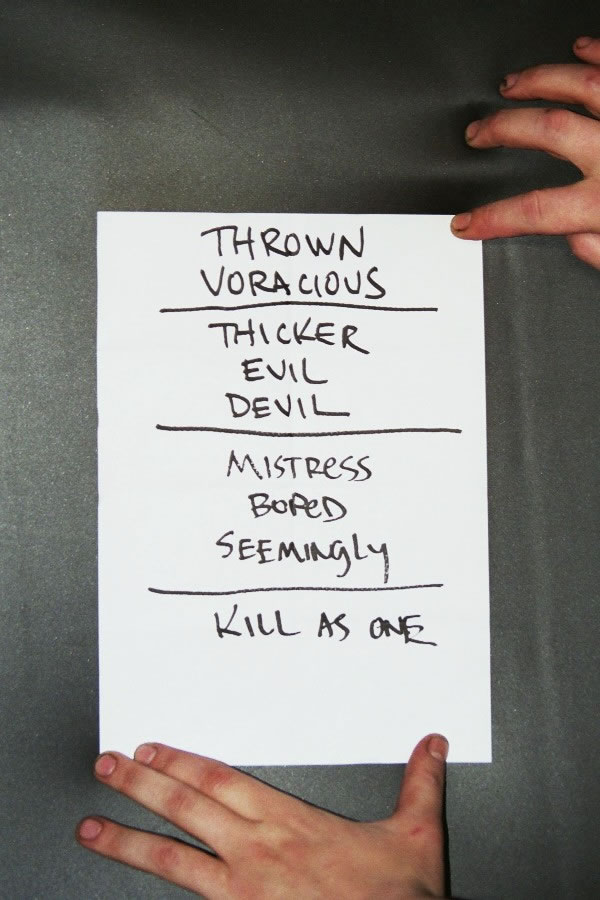 THROWN
VORACIOUS
THICKER
EVIL
DEVIL
MISTReSS
BOReD
SEEMINgLy
KILL AS ONE